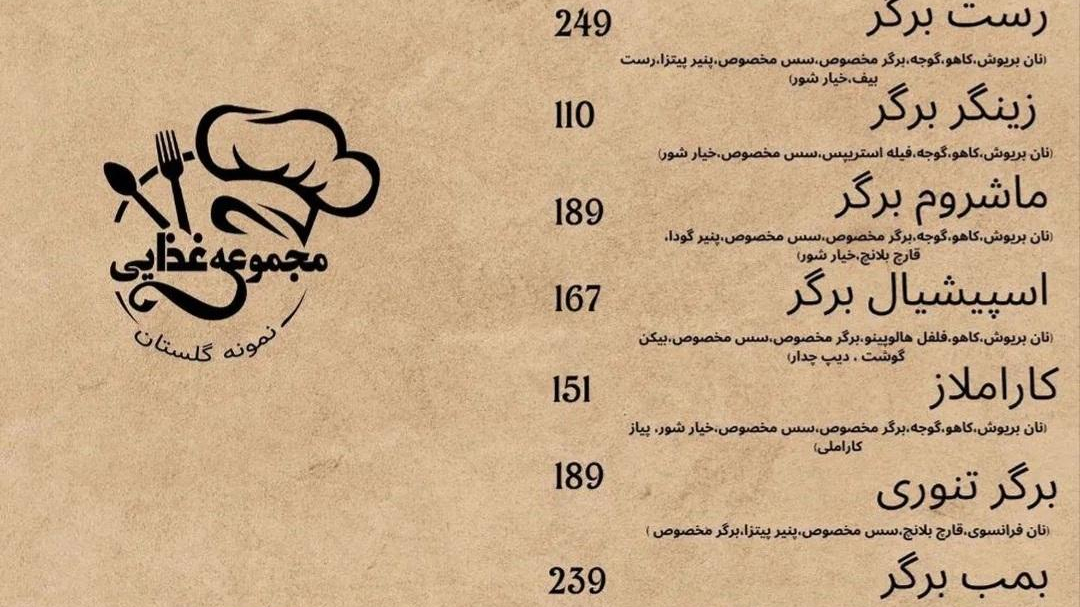 رست برگر
249
(نان بریوش،کاهو،گوجه،برگر مخصوص،سس مخصوص،پنیر پیتزا،رست
بیف،خیار شور)
زینگر برگر
110
(نان بریوش،کاهو،گوجه،فیله استریپس،سس مخصوص،خیار شور)
ماشروم برگر
189
(نان بریوش،کاهو،گوجه،برگر مخصوص،سس مخصوص،پنیر گودا،
قارچ بلانچ،خیار شور)
اسپیشیال برگر
167
(نان بریوش،کاهو،فلفل هالوپینو،برگر مخصوص،سس مخصوص،بیکن
گوشت ، دیپ چدار)
کاراملاز
151
(نان بریوش،کاهو،گوجه،برگر مخصوص،سس مخصوص،خیار شور، پیاز
کاراملی)
برگر تنوری
189
(نان فرانسوی،قارچ بلانچ،سس مخصوص،پنیر پیتزا،برگر مخصوص )
بمب برگر
239
مجموعه غذایی
نمونه گلستان